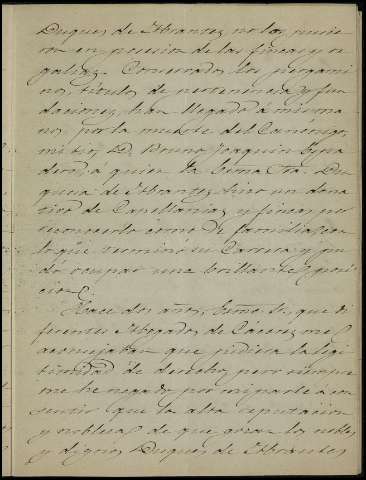 Duques de Abrantes no los pusie
ron en posesion de las fincas y re
galias. Conservados los pergami
nos, titulos de pertenencia y fun
daciones, han llegado á mis ma
nos, por la muerte del Canónigo,
mi tio, D. Bruno Joaquin
dero, á quien la Exma. Sra. Du
quesa de Abrantes hizo un dona
tivo de Capellanias y fincas por
reconocerlo como de familia, con
lo que terminó su Carrera y pu
do ocupar una brillante posi
cion.
Hace dos años, Exmo. Sr., que di
ferentes Abogados de Caceres me
aconsejaban que pidiera la legi
timidad de derecho, pero siempre
me he negado por mi parte á con
sentir que la alta reputacion
y nobleza de que gozan los nobles
y dignos Duques de Abrantes